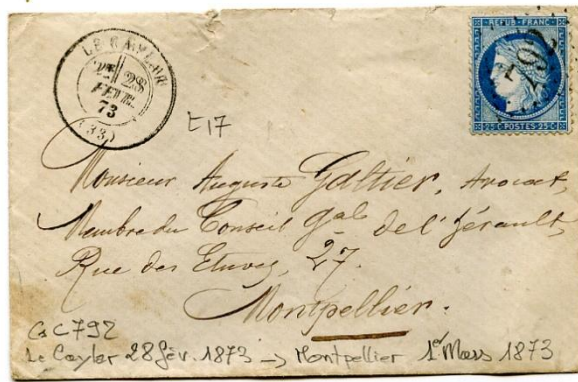 LE CAYLAR
2E 28
FEVR.
73
(33)
REPUB · FRANC ·
25 C POSTES 25 C
792
E17
Monsieur Auguste Galtier, Avocat,
Membre du Conseil Gal de l'hérault,
Rue des Etuves, 27.
Montpellier.
GC 792
Le Caylar 28 fév. 1873 → Montpellier 1er Mars 1873